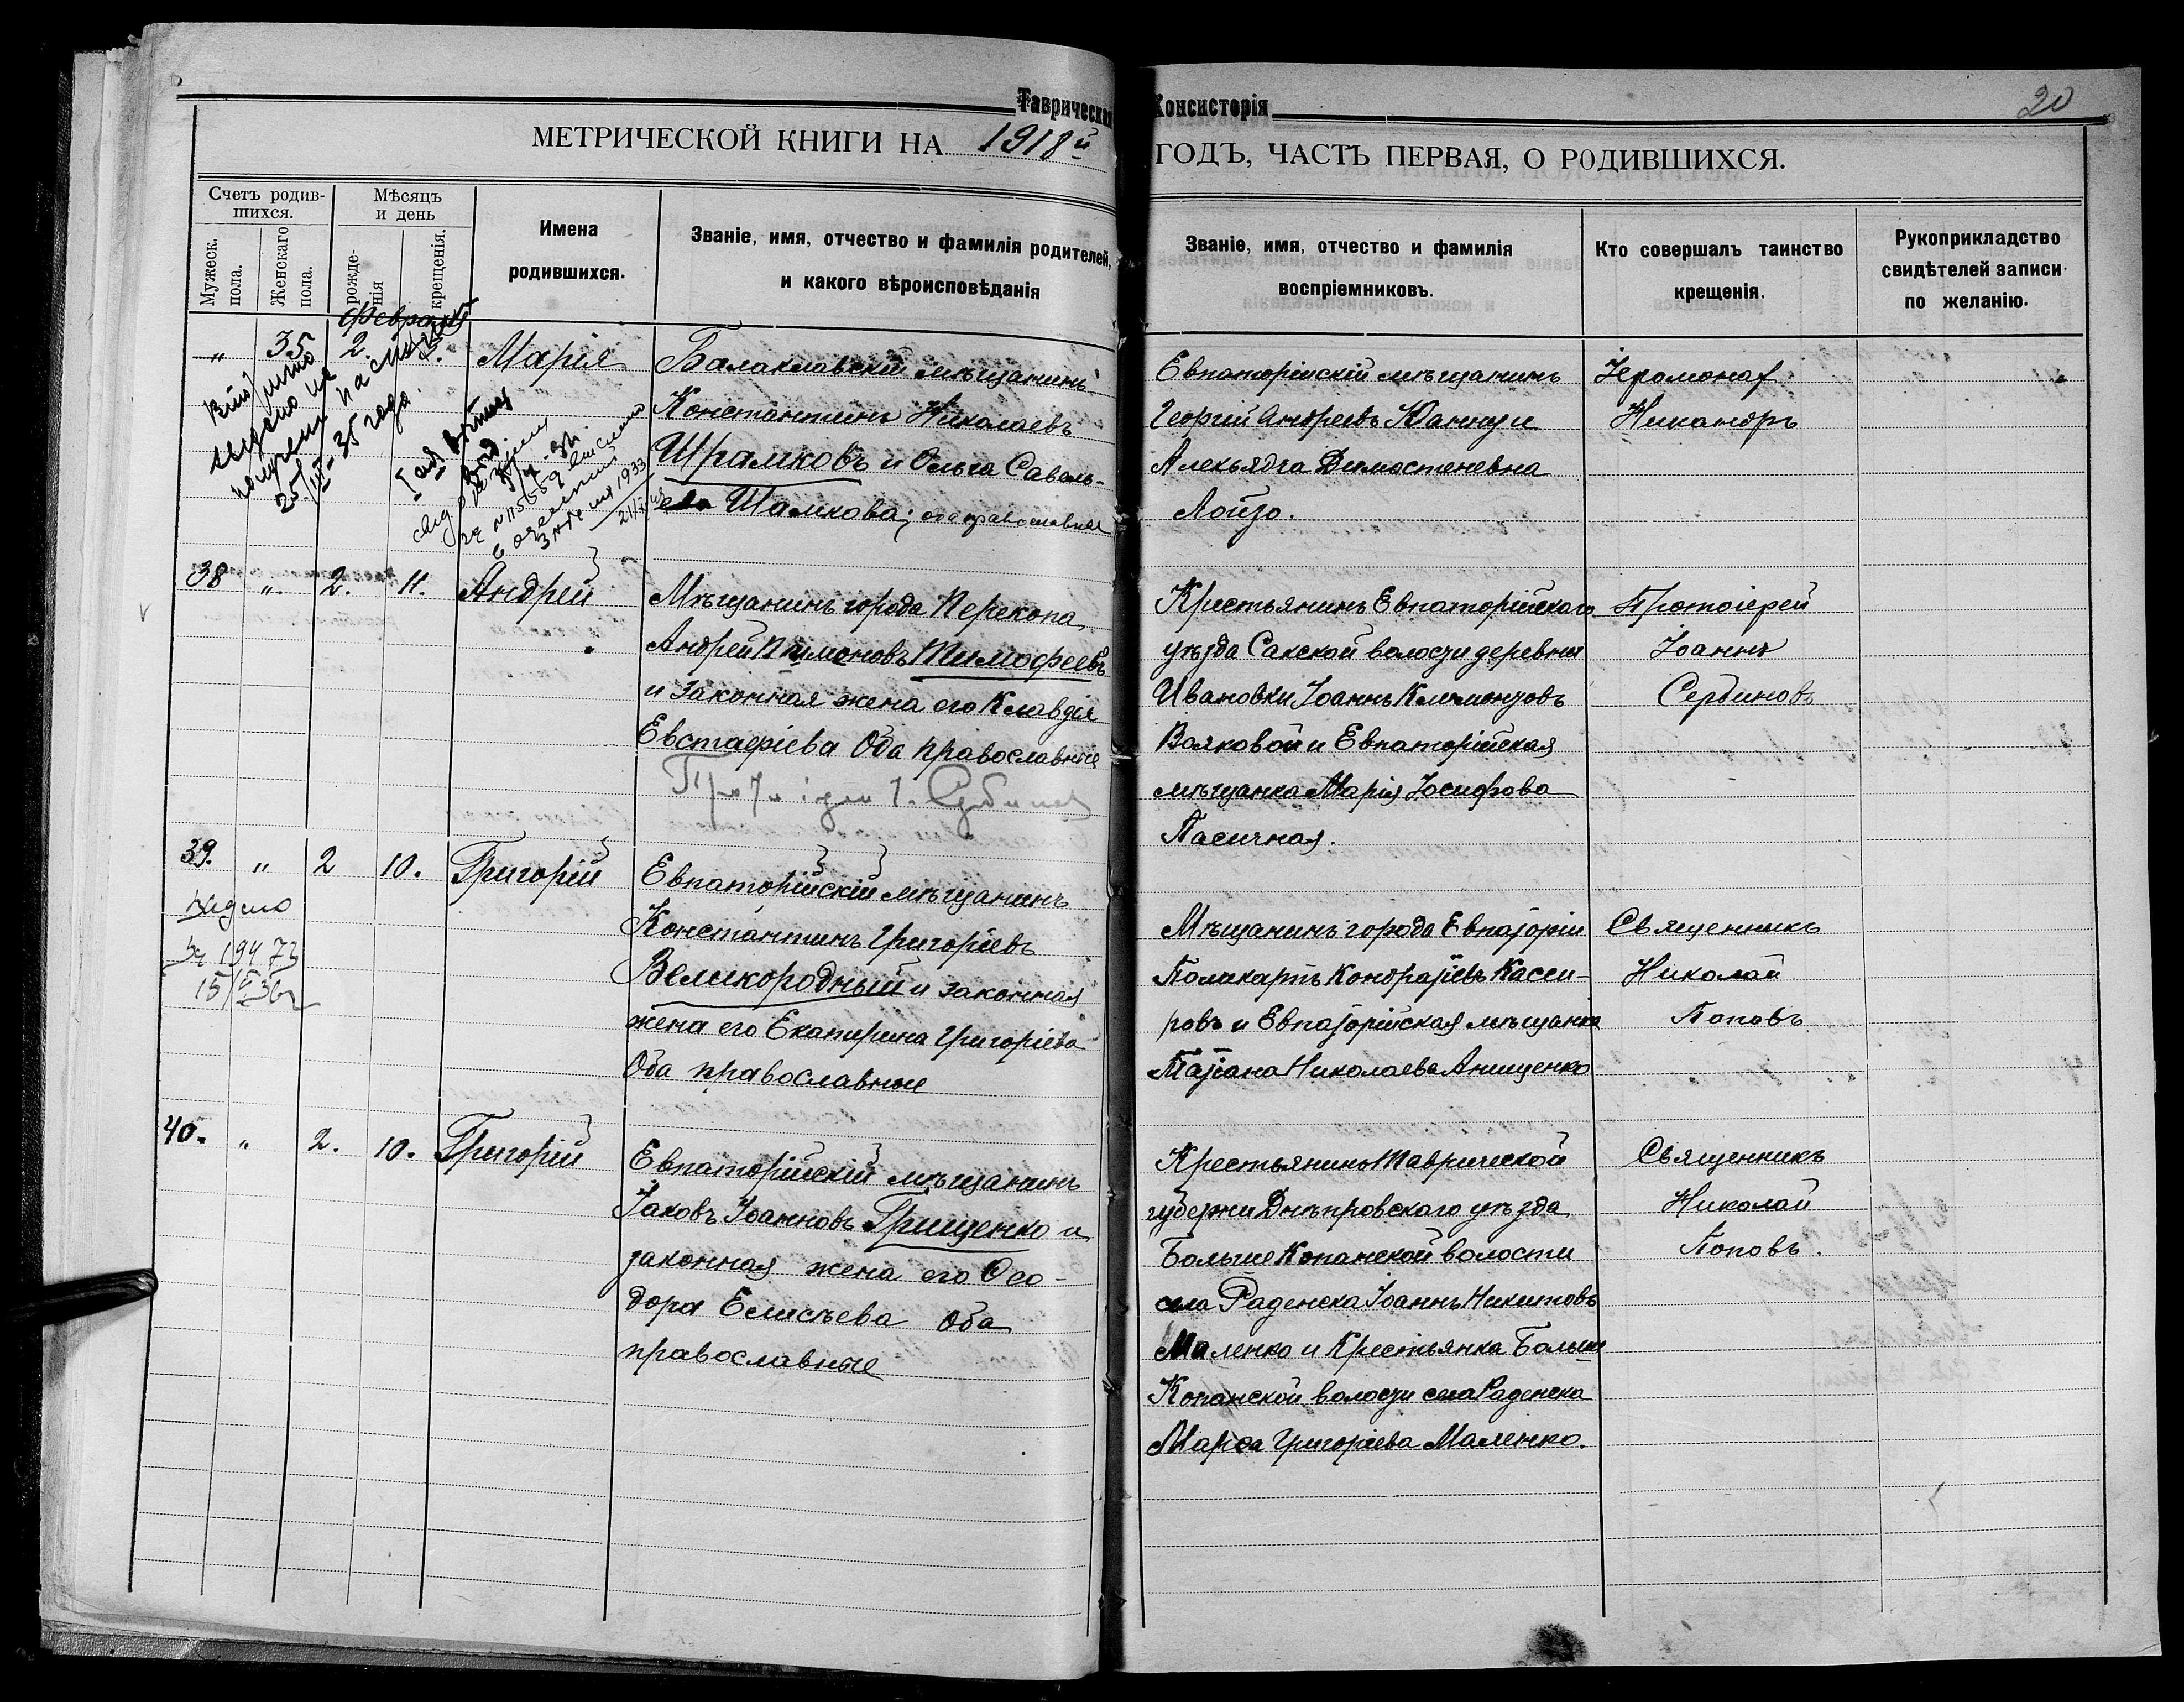 Таврическая Консисторія
20
МЕТРИЧЕСКОЙ КНИГИ НА 1918й ГОДЪ, ЧАСТЬ ПЕРВАЯ, О РОДИВШИХСЯ.
Счетъ родив-
шихся.
Мужеск.
пола.
Женскаго
пола.
Мѣсяцъ
и день
рожде-
нія
крещенія.
Имена
родившихся.
Званіе, имя, отчество и фамилія родителей,
и какого вѣроисповѣданія
Званіе, имя, отчество и фамилія
воспріемниковъ.
Кто совершалъ таинство
крещенія.
Рукоприкладство
свидѣтелей записи
по желанію.
Февраля
„ 35 2. Марія
Балаклавскій мѣщанинъ
Константинъ Николаевъ
и Ольга Савель-
ева
Евпаторійскій мѣщанинъ
Георгій Андреевъ
Димостеновна
Лойзо.
Іеромонах
Никандръ
выдано на
получен паспорта
25/III-35 года.
1933
38 „ 2. 11. Андрей
Мѣщанинъ города Перекопа
Андрей Пимоновъ Тимофеевъ
и законная жена его Клавдія
Евстафіева Оба православные
Протоіерей І. Сербиновъ
Крестьянинъ Евпаторійскаго
уѣзда Сакской волости деревни
Ивановки Іоаннъ Климонтовъ
и Евпаторійская
мѣщанка Марія Іосифова
Пасичная.
Протоіерей
Іоаннъ
Сербиновъ
39. „ 2 10. Григорій
Евпаторійскій мѣщанинъ
Константинъ Григоріевъ
Великородный и законная
жена его Екатерина Григоріева
Оба православные
19473
Мѣщанинъ города Евпаторіи
Поликарпъ Кондратіевъ Касси-
ровъ и Евпаторійская мѣщанка
Татіана Николаева Анищенко
Священникъ
Николай
Поповъ
40. „ 2. 10. Григорій
Евпаторійскій мѣщанинъ
Іаковъ Іоанновъ Грищенко и
законная жена его Ѳео-
дора Елисѣева Оба
православные
Крестьянинъ Таврической
губерніи Днѣпровскаго уѣзда
Больше Копанской волости
села Раденска Іоаннъ Никитовъ
Маленко и Крестьянка Больше
Копанской волости села Раденска
Марѳа Григоріева Маленко.
Священникъ
Николай
Поповъ.